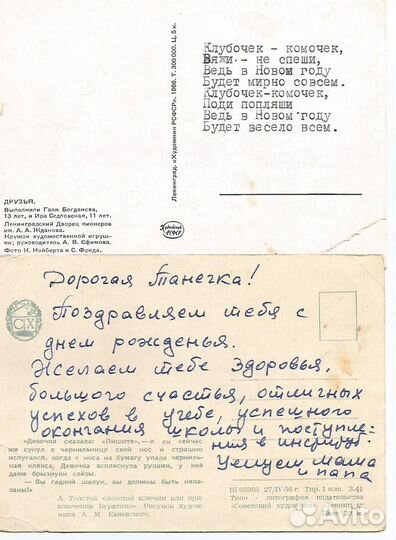 Клубочек - комочек,
Вяжи - не спеши,
Ведь в Новом году
Будет мирно совсем.
Клубочек-комочек,
Поди попляши
Ведь в Новом году
Будет весело всем.
Ленинград. «Художник РСФСР». 1968. Т. 300 000. Ц. 5 к.
ДРУЗЬЯ.
Выполнили Галя Богданова,
13 лет, и Ира Седловская, 11 лет.
Ленинградский Дворец пионеров
им. А. А. Жданова.
Кружок художественной игруш-
ки; руководитель А. В. Ефимова.
Фото К. Нойберта и С. Фрида.
Дорогая Танечка!
Поздравляем тебя с
днем рожденья.
Желаем тебе здоровья,
большого счастья, отличных
успехов в учебе, успешного
окончания школы и поступле-
ния в институт.
Целуем мама
и папа
СХ
«Девочка сказала: «Пишите», — и он сейчас
же сунул в чернильницу свой нос и страшно
испугался, когда с носа на бумагу упала черниль-
ная клякса. Девочка всплеснула руками, у неё
даже брызнули слёзы.
— Вы гадкий шалун, вы должны быть нака-
заны!»
А. Толстой «Золотой ключик или при-
ключения Буратино». Рисунок худож-
ника А. М. Каневского.
Ш 05995 27/IV-56 г. Тир. 1 млн. З.41
Типо - литография издательства
«Советский художник»
Avito